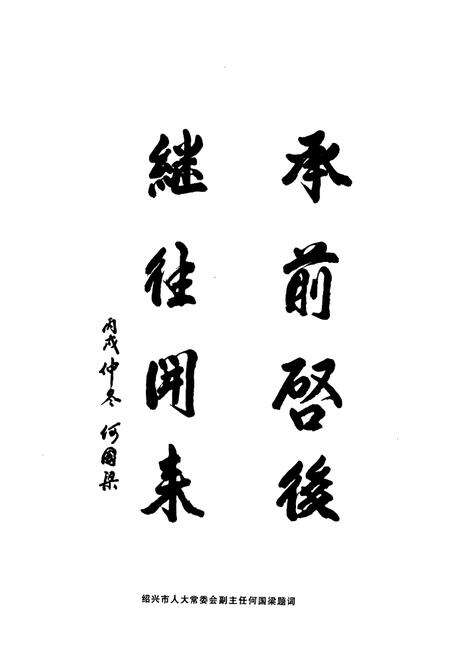 承前啓後
継往開来
丙戌仲冬 何國梁
绍兴市人大常委会副主任何国梁题词